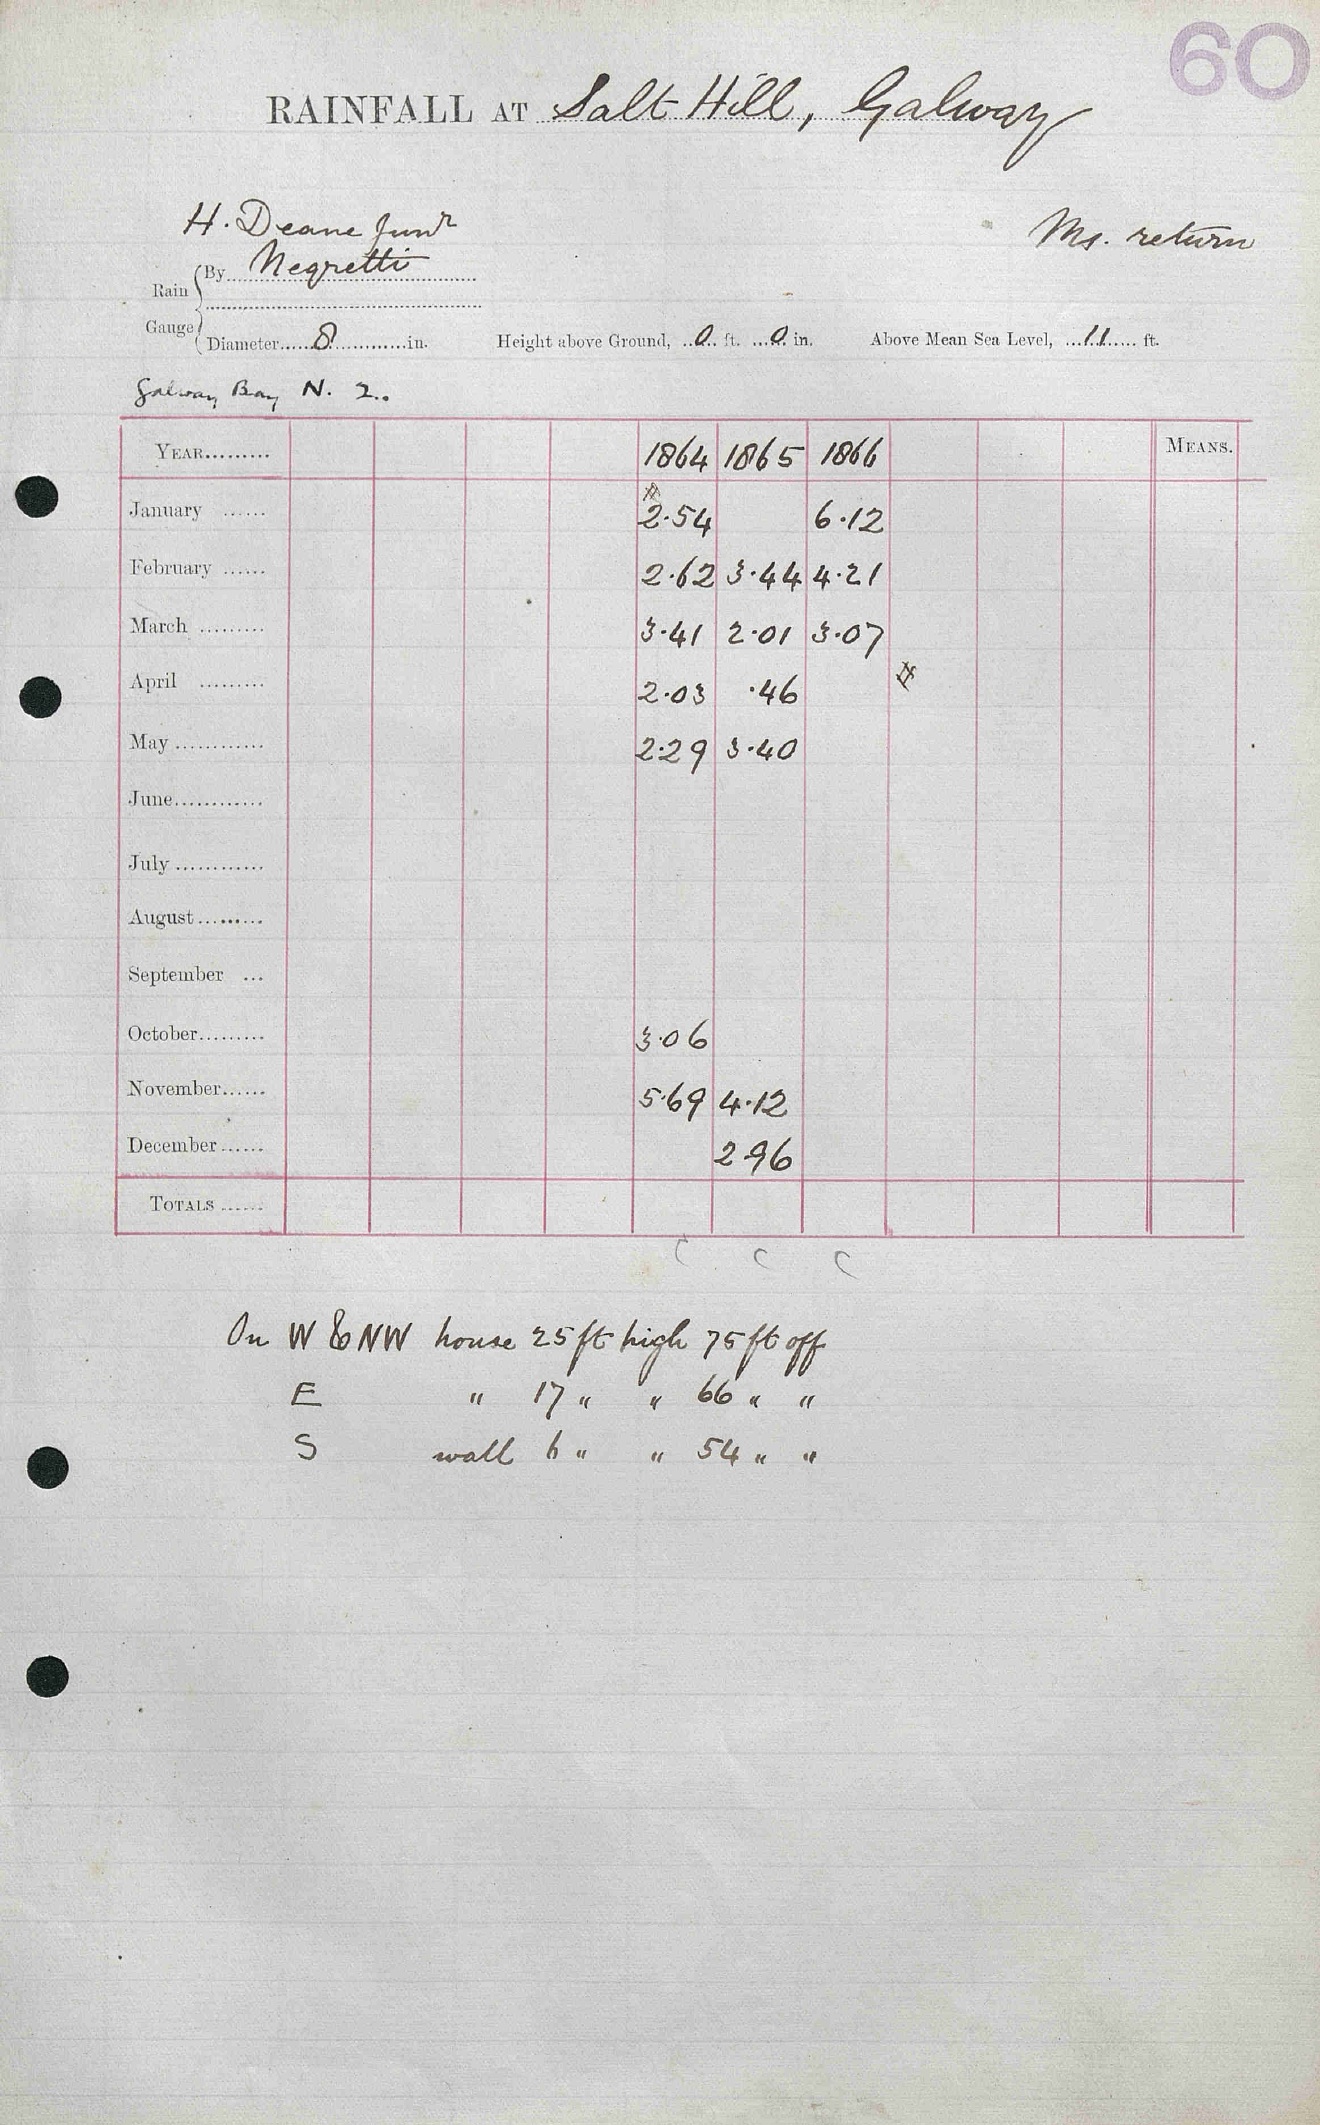 60
RAINFALL AT Salt Hill, Galway
H. Deane Junr
Ms. return
Rain Gauge { By Negretti
Diameter......8............in. Height above Ground, ..0.. ft. ...0.. in. Above Mean Sea Level, ...11...... ft.
Galway Bay N. 2..
YEAR......... 1864 1865 1866 MEANS.
#
January ...... 2.54 6.12
February ...... 2.62 3.44 4.21
March ......... 3.41 2.01 3.07
April ......... 2.03 .46 #
May ............ 2.29 3.40
June............
July ............
August.........
September ...
October......... 3.06
November...... 5.69 4.12
December...... 2.96
TOTALS ......
On W & NW house 25 ft high 75 ft off
E " 17 " " 66 " "
S wall 6 " " 54 " "